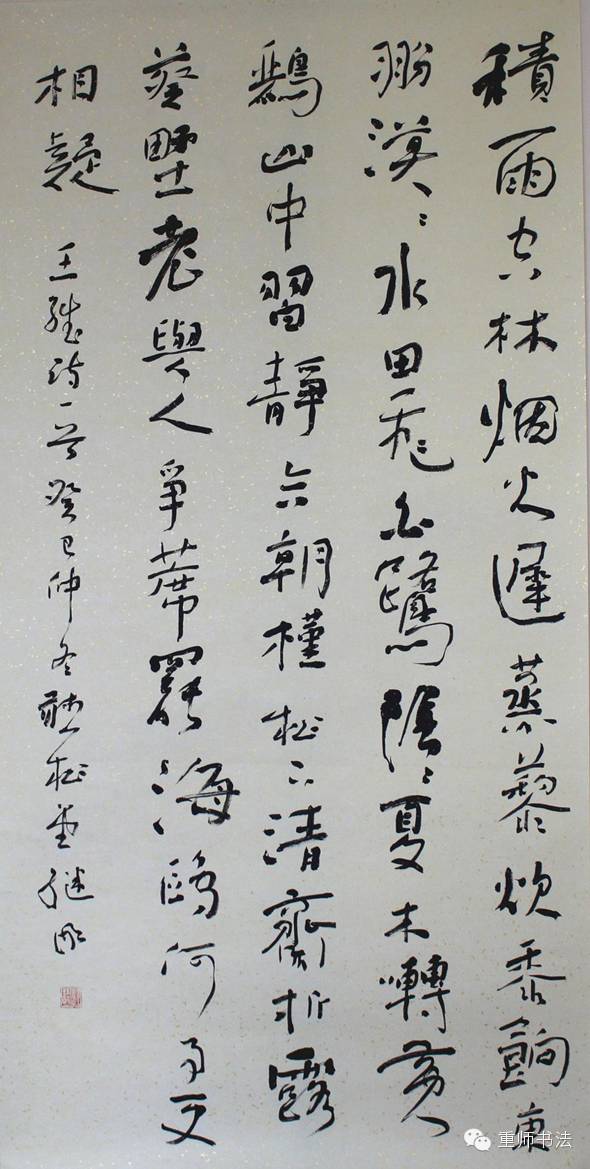 積雨空林烟火遲蒸藜炊黍餉東
漠〻水田飛白鷺陰〻夏木囀黃
鸝山中習靜朝槿松下清齋折露
葵墅老與人爭蓆罷海鷗何事更
相疑 王維詩一首癸巳仲冬聽松堂
重师书法